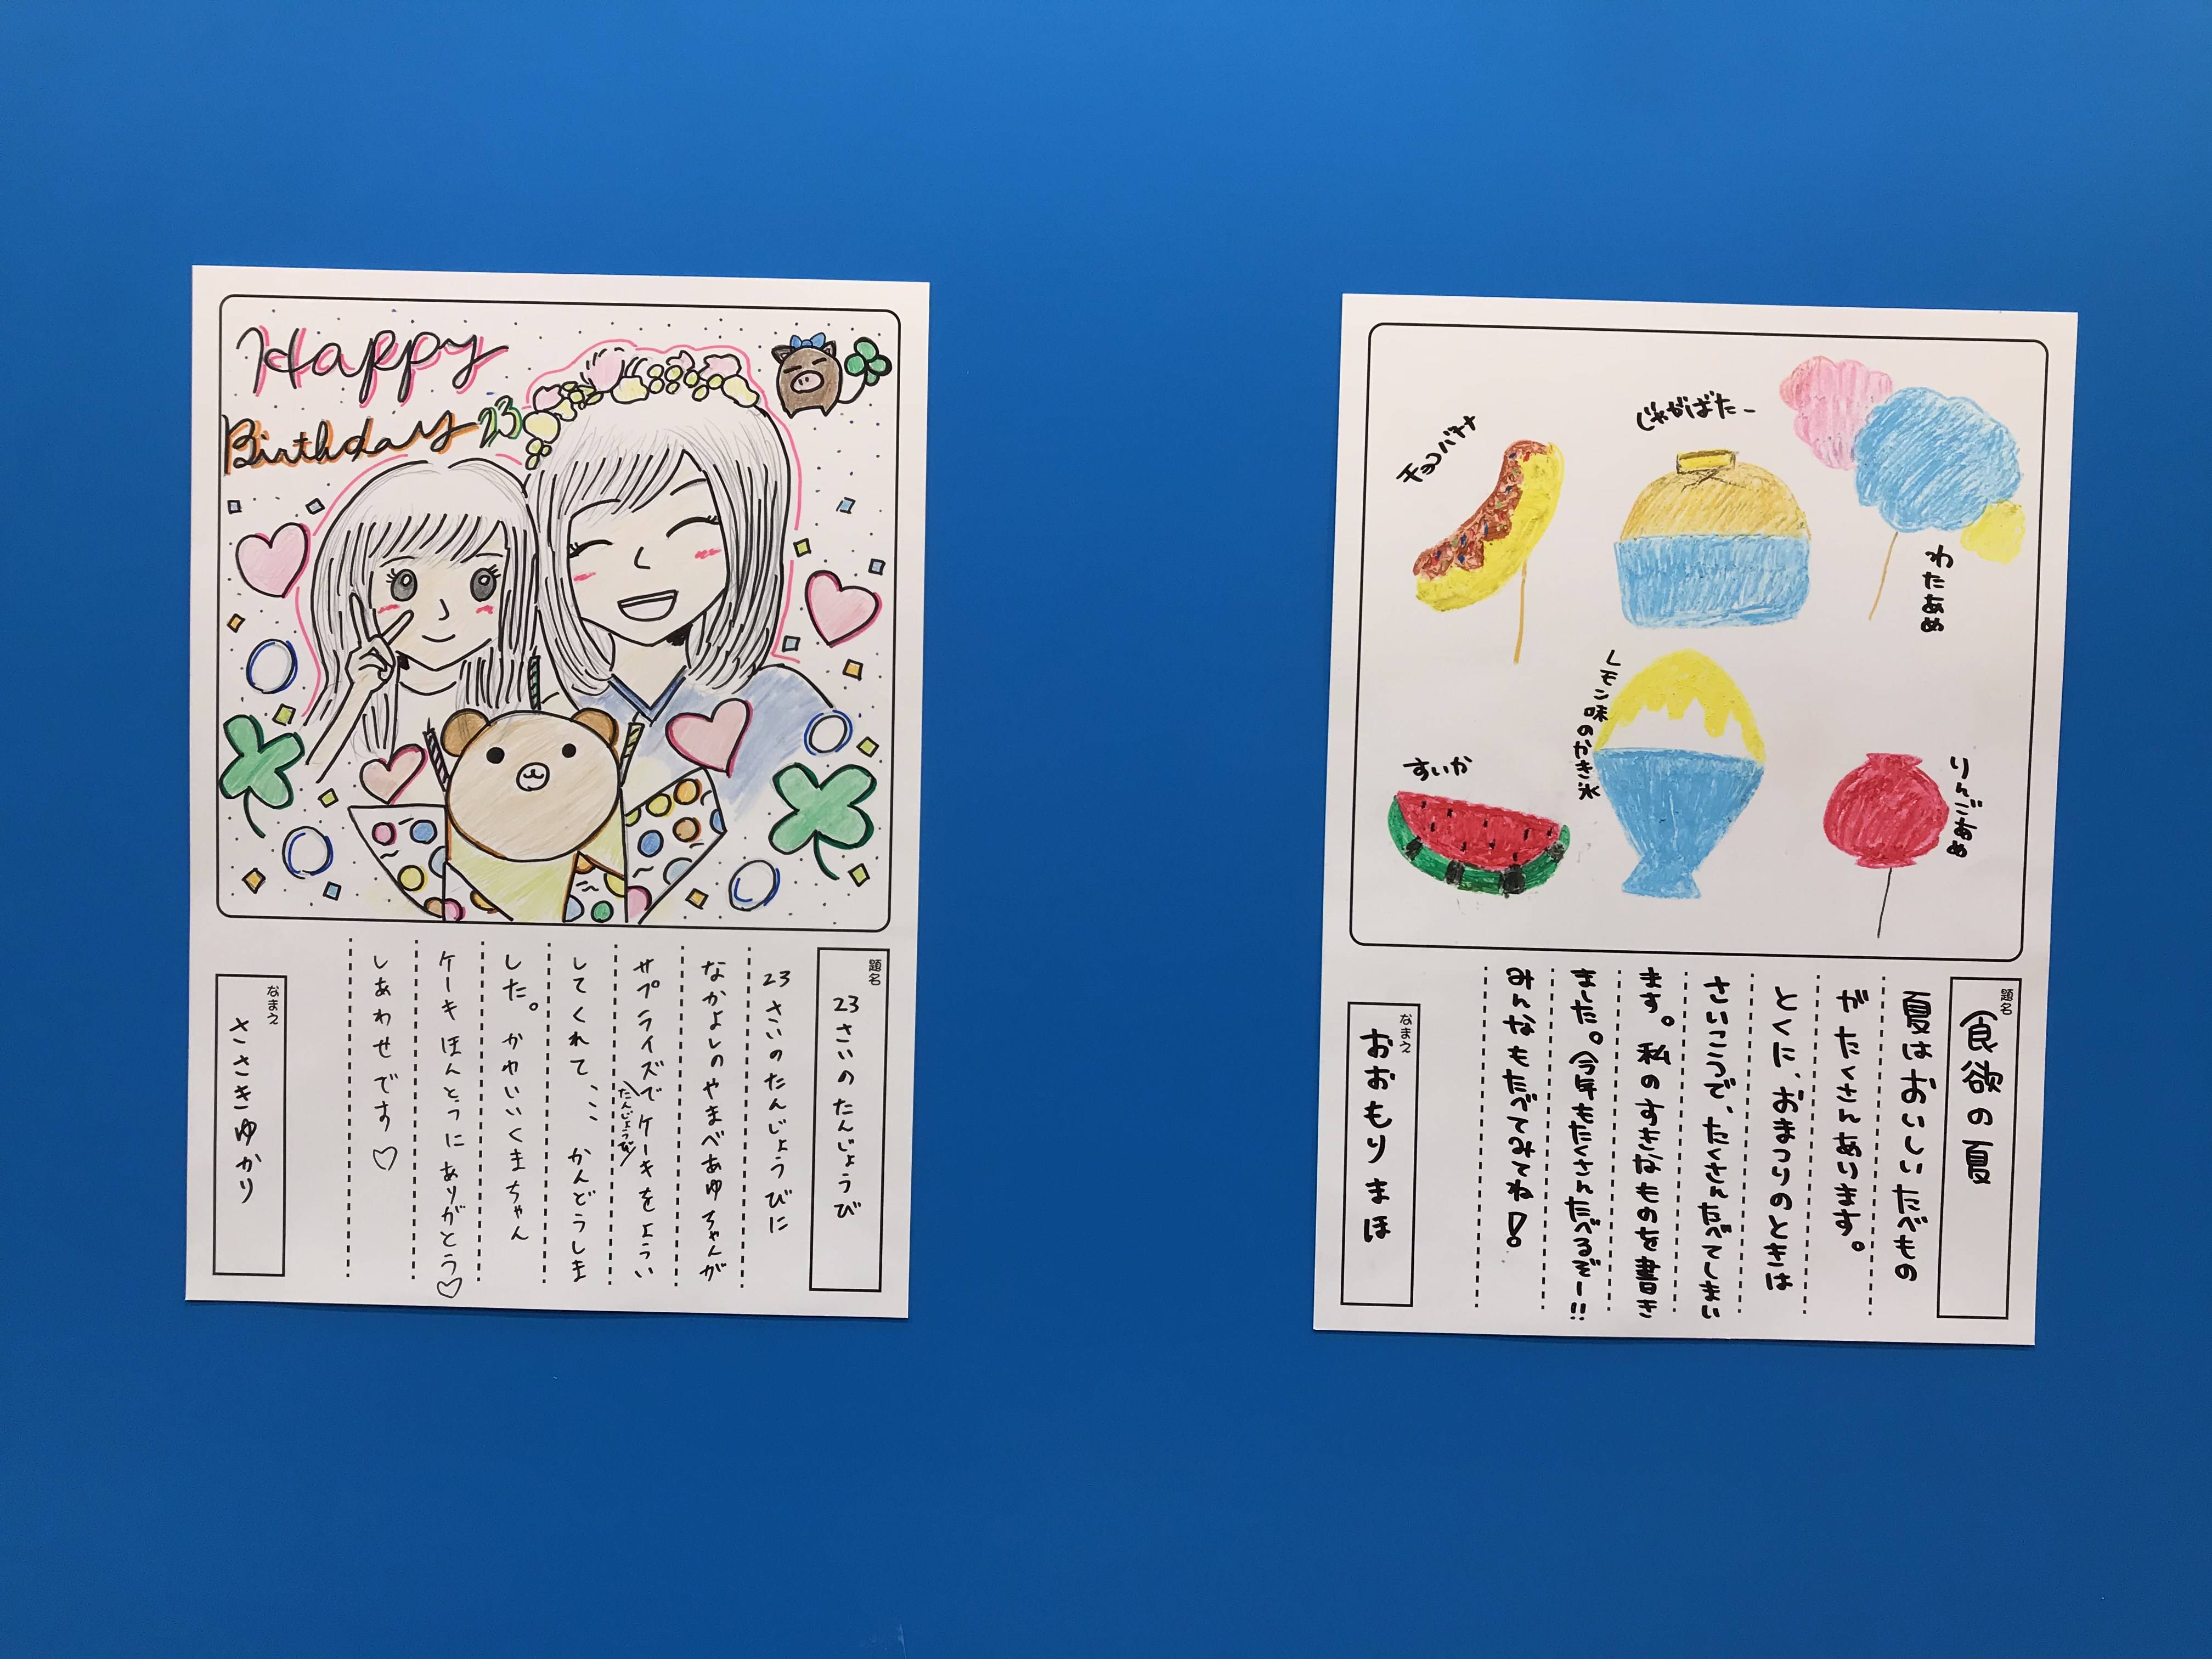 Happy
Birthday 23
題名
23さいのたんじょうび
23さいのたんじょうびに
なかよしのやまべあゆちゃんが
サプライズでたんじょうびケーキをようい
してくれて、、、かんどうしま
した。かわいいくまちゃん
ケーキほんとうにありがとう♡
しあわせです♡
なまえ
ささきゆかり
チョコバナナ
じゃがばたー
わたあめ
レモン味のかき氷
すいか
りんごあめ
題名
食欲の夏
夏はおいしいたべもの
がたくさんあります。
とくに、おまつりのときは
さいこうで、たくさんたべてしまい
ます。私のすきなものを書き
ました。今年もたくさんたべるぞー!!
みんなもたべてみてね!
なまえ
おおもりまほ